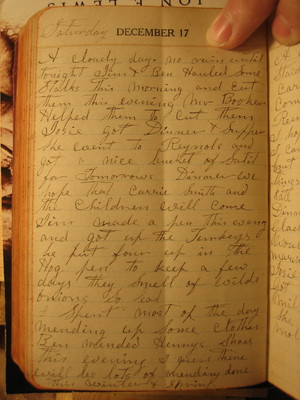 ON E. LEWIS
Saturday
DECEMBER 17
A cloudy day no rain until
tonight Jim & Ben Hauled some
Stalks this morning and Cut
them this evening Mr Booker
Helped them to Cut them
Josie Got Dinner & Supper
she went to Reynols and
got a nice bucket of Salid
for Tomorrows Dinner we
hope that Carrie Smith and
the Children will come
Jim made a pen this evening
and got up the
he put four up in the
Hog pen to keep a few
days they smell of wilde
onions so bad
I Spent most of the day
mending up Some Clothes
Ben mended Henrys Shoes
this evening I guess there
will be lots of mending done
this winter & Spring